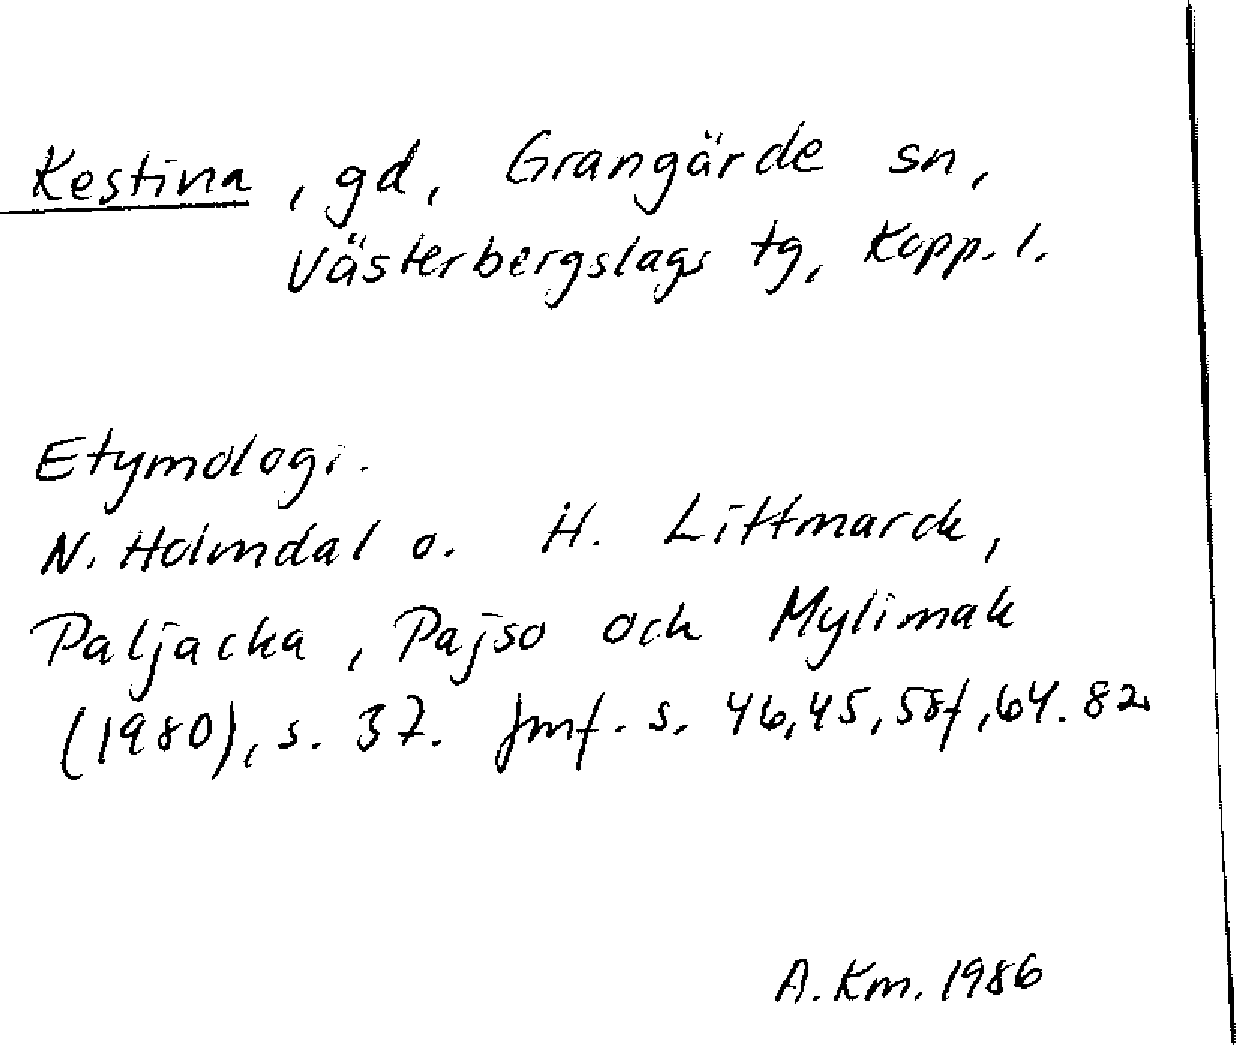 Kestina, gd, Grangärde sn,
Västerbergslags tg, Kopp. l.
Etymologi.
N. Holmdal o. H. Littmarck,
Paljacka, Pajso och Mylimak
(1980), s. 37. Jmf. s. 46,45,58f,64.82
A. Km. 1986